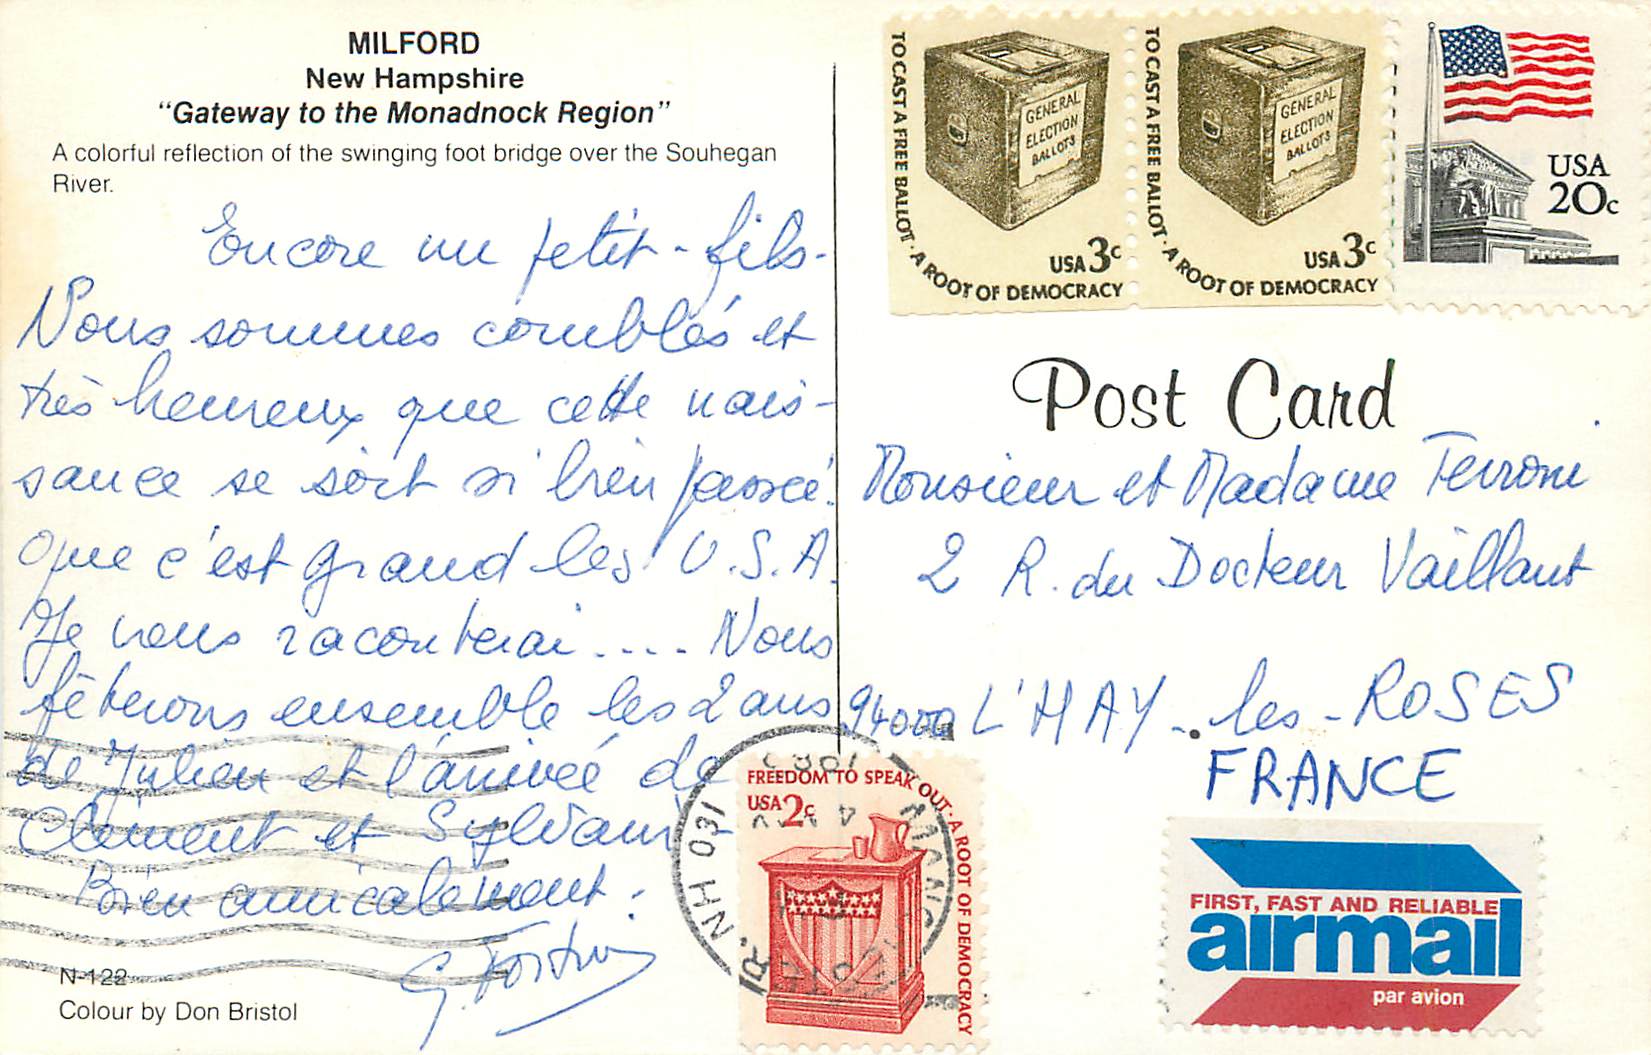 MILFORD
New Hampshire
“Gateway to the Monadnock Region”
A colorful reflection of the swinging foot bridge over the Souhegan
River.
Encore un petit-fils.
Nous sommes comblés et
très heureux que cette nais-
sance se soit si bien passée.
Que c'est grand les U.S.A.
Je vous raconterai.... Nous
fêterons ensemble les 2 ans
de Julien et l'arrivée de
Clément et Sylvain
Bien amicalement :
N-122
Colour by Don Bristol
TO CAST A FREE BALLOT · A ROOT OF DEMOCRACY
GENERAL
ELECTION
BALLOTS
USA 3c
TO CAST A FREE BALLOT · A ROOT OF DEMOCRACY
GENERAL
ELECTION
BALLOTS
USA 3c
USA
20c
Post Card
Monsieur et Madame Ferroni
2 R. du Docteur Vaillant
94000 L'HAY-les-ROSES
FRANCE
FREEDOM TO SPEAK OUT · A ROOT OF DEMOCRACY
USA 2c
NH 031
FIRST, FAST AND RELIABLE
airmail
par avion